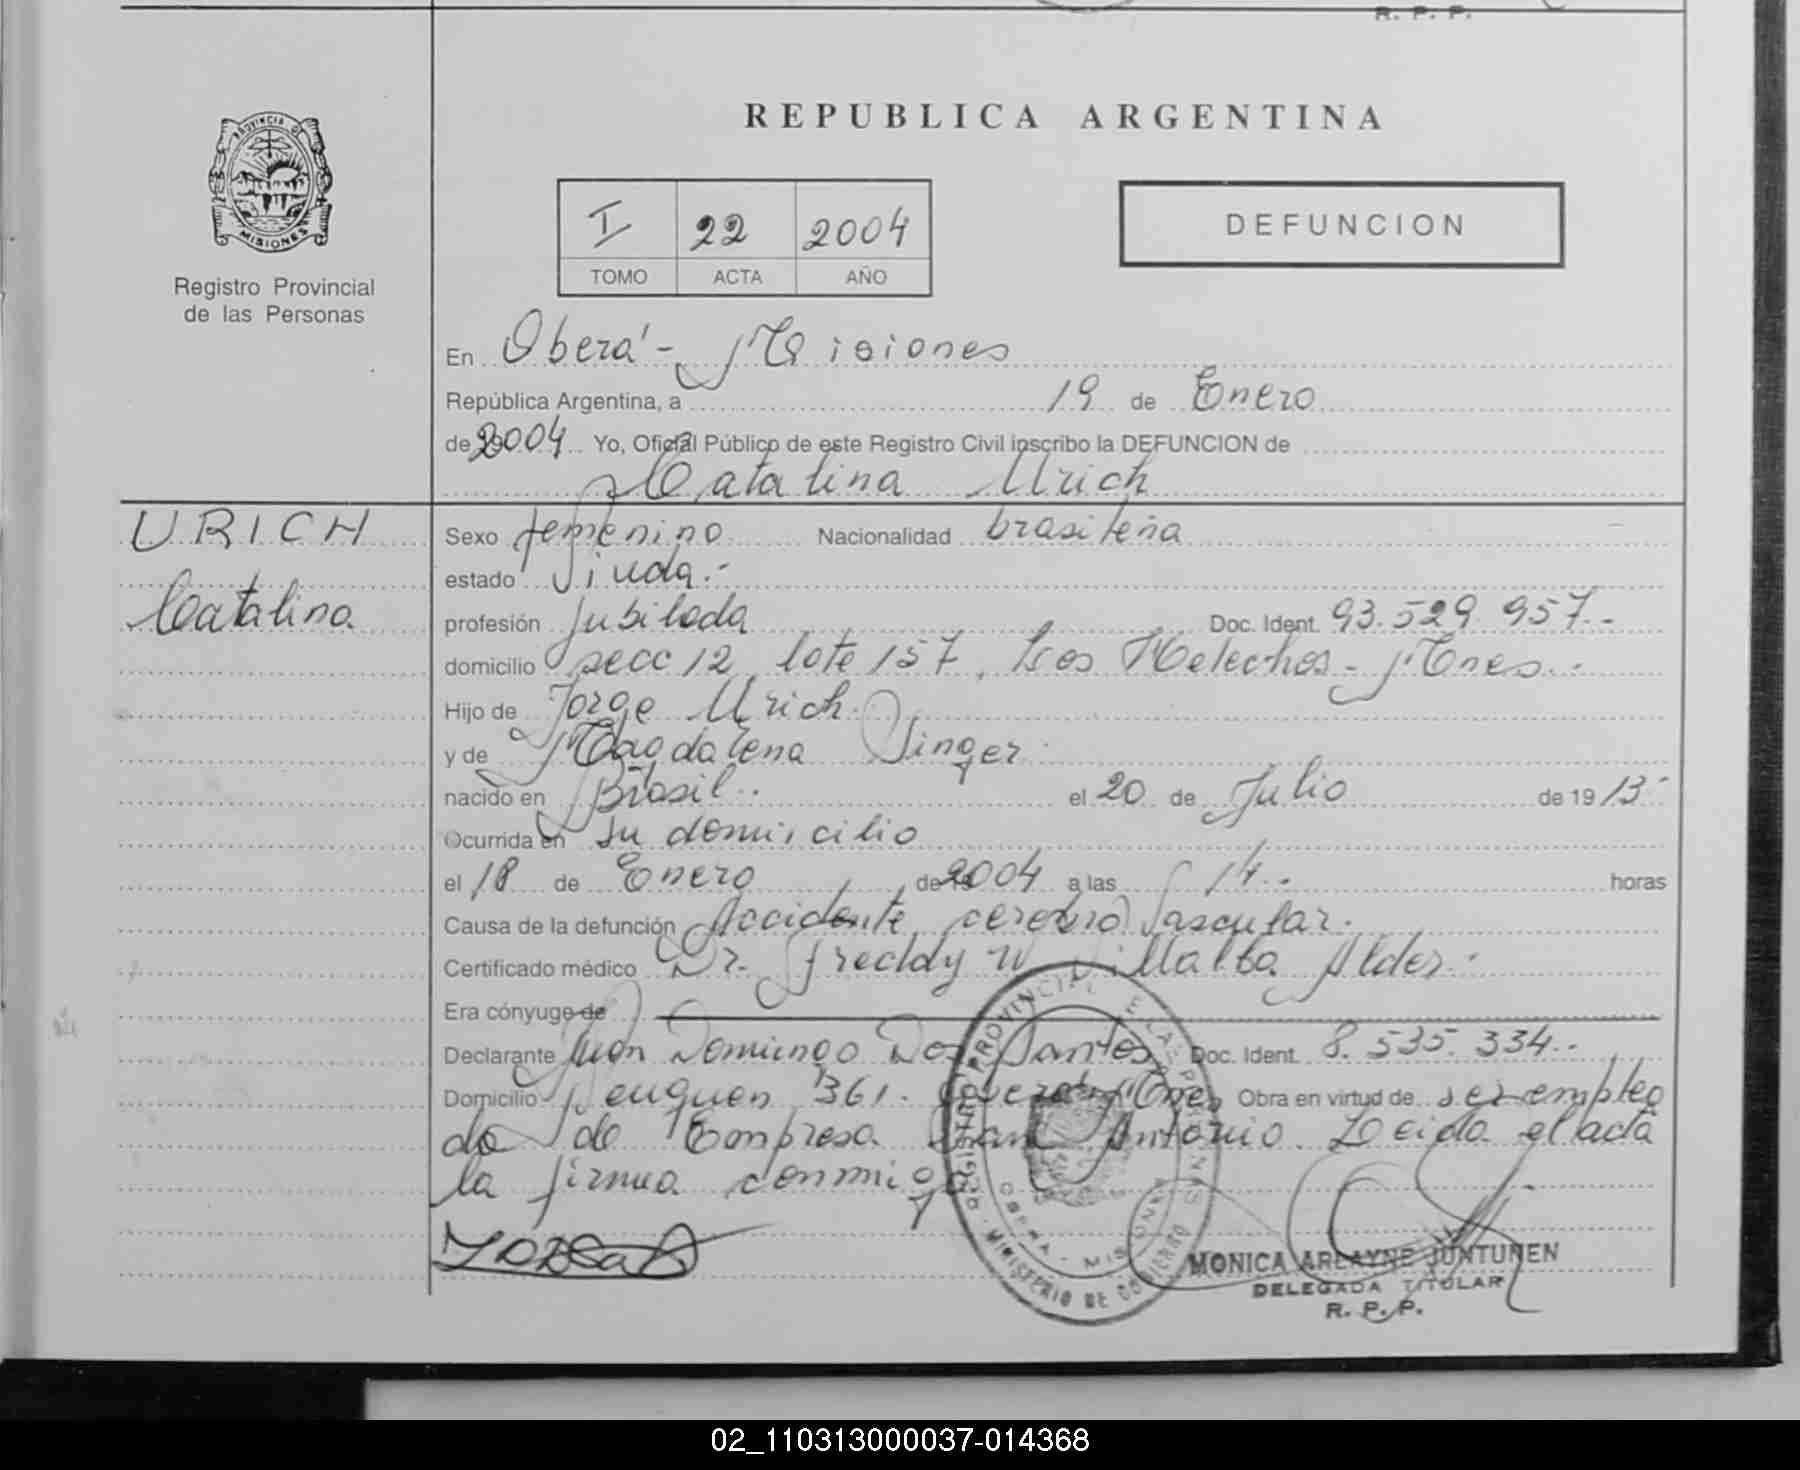 R. P. P.
REPUBLICA ARGENTINA
PROVINCIA DE
MISIONES
Registro Provincial
de las Personas
I 22 2004
TOMO ACTA AÑO
DEFUNCION
En Oberá - Misiones
República Argentina, a 19 de Enero
de 2004 Yo, Oficial Público de este Registro Civil inscribo la DEFUNCION de
Catalina Urich
URICH
Catalina
Sexo femenino Nacionalidad brasileña
estado Viuda.-
profesión Jubilada Doc. Ident. 93.529.957.-
domicilio secc 12, lote 157, Los Helechos - Mnes.-
Hijo de Jorge Urich
y de Magdalena Singer
nacido en Brasil. el 20 de Julio de 1913
Ocurrida en su domicilio
el 18 de Enero de 2004 a las 14.- horas
Causa de la defunción Accidente cerebro Vascular.
Certificado médico Dr. Freddy W Villalba Alder.-
Era cónyuge de
Declarante Juan Domingo Dos Santos Doc. Ident. 8.535.334.-
Domicilio Neuquen 361. Oberá Mnes Obra en virtud de ser emplea
do de Empresa San Antonio. Leida el acta
la firma conmigo
REGISTRO PROVINCIAL DE LAS PERSONAS
OBERA - MISIONES
MINISTERIO DE GOBIERNO
MONICA ARLAYNE JUNTUNEN
DELEGADA TITULAR
R. P. P.
02_110313000037-014368